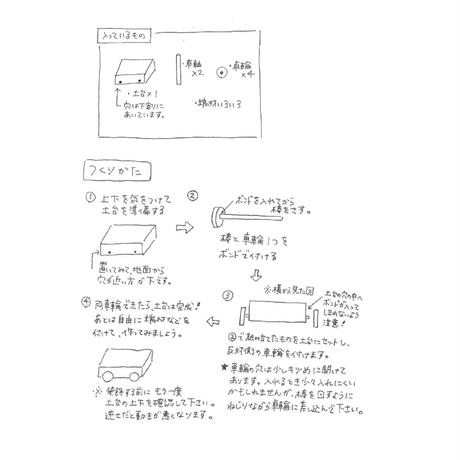 入っているもの
・土台×1
穴は下割りに
あいています。
・車軸
×2
・車輪
×4
・端材いろいろ
つくりかた
① 上下を気をつけて
土台を準備する
置いてみて、地面から
穴が近い方が下です。
②
ボンドを入れてから
棒をさす。
棒と車輪1つを
ボンドで付ける
③
※横から見た図
土台の穴の中へ
ボンドが入って
しまわないよう
注意!
②で組み立てたものを土台にセットし、
反対側の車輪を付けます。
★車輪の穴は少しキツめに開けて
あります。入れるとき少々入れにくい
かもしれませんが、棒を回すように
ねじりながら車輪に差し込んで下さい。
④ 両車輪できたら、土台は完成!
あとは自由に端材などを
付けて、作ってみましょう。
※ 発飾する前にもう一度
土台の上下を確認して下さい。
逆だと動きが悪くなります。